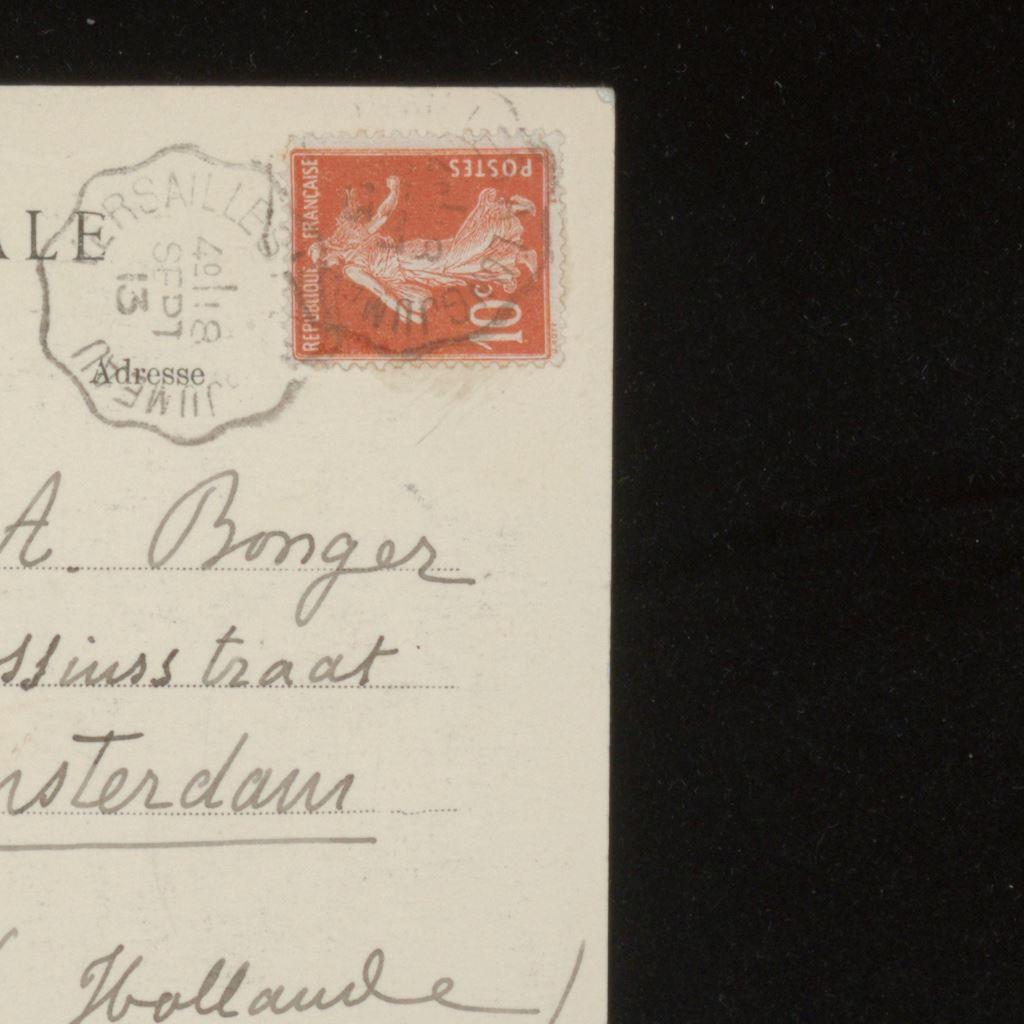 ALE
VERSAILLES
4º 18
SEPT
13
JUMEAU
RÉPUBLIQUE FRANÇAISE
POSTES
10c
Adresse
A. Bonger
ssiusstraat
msterdam
( Hollande )